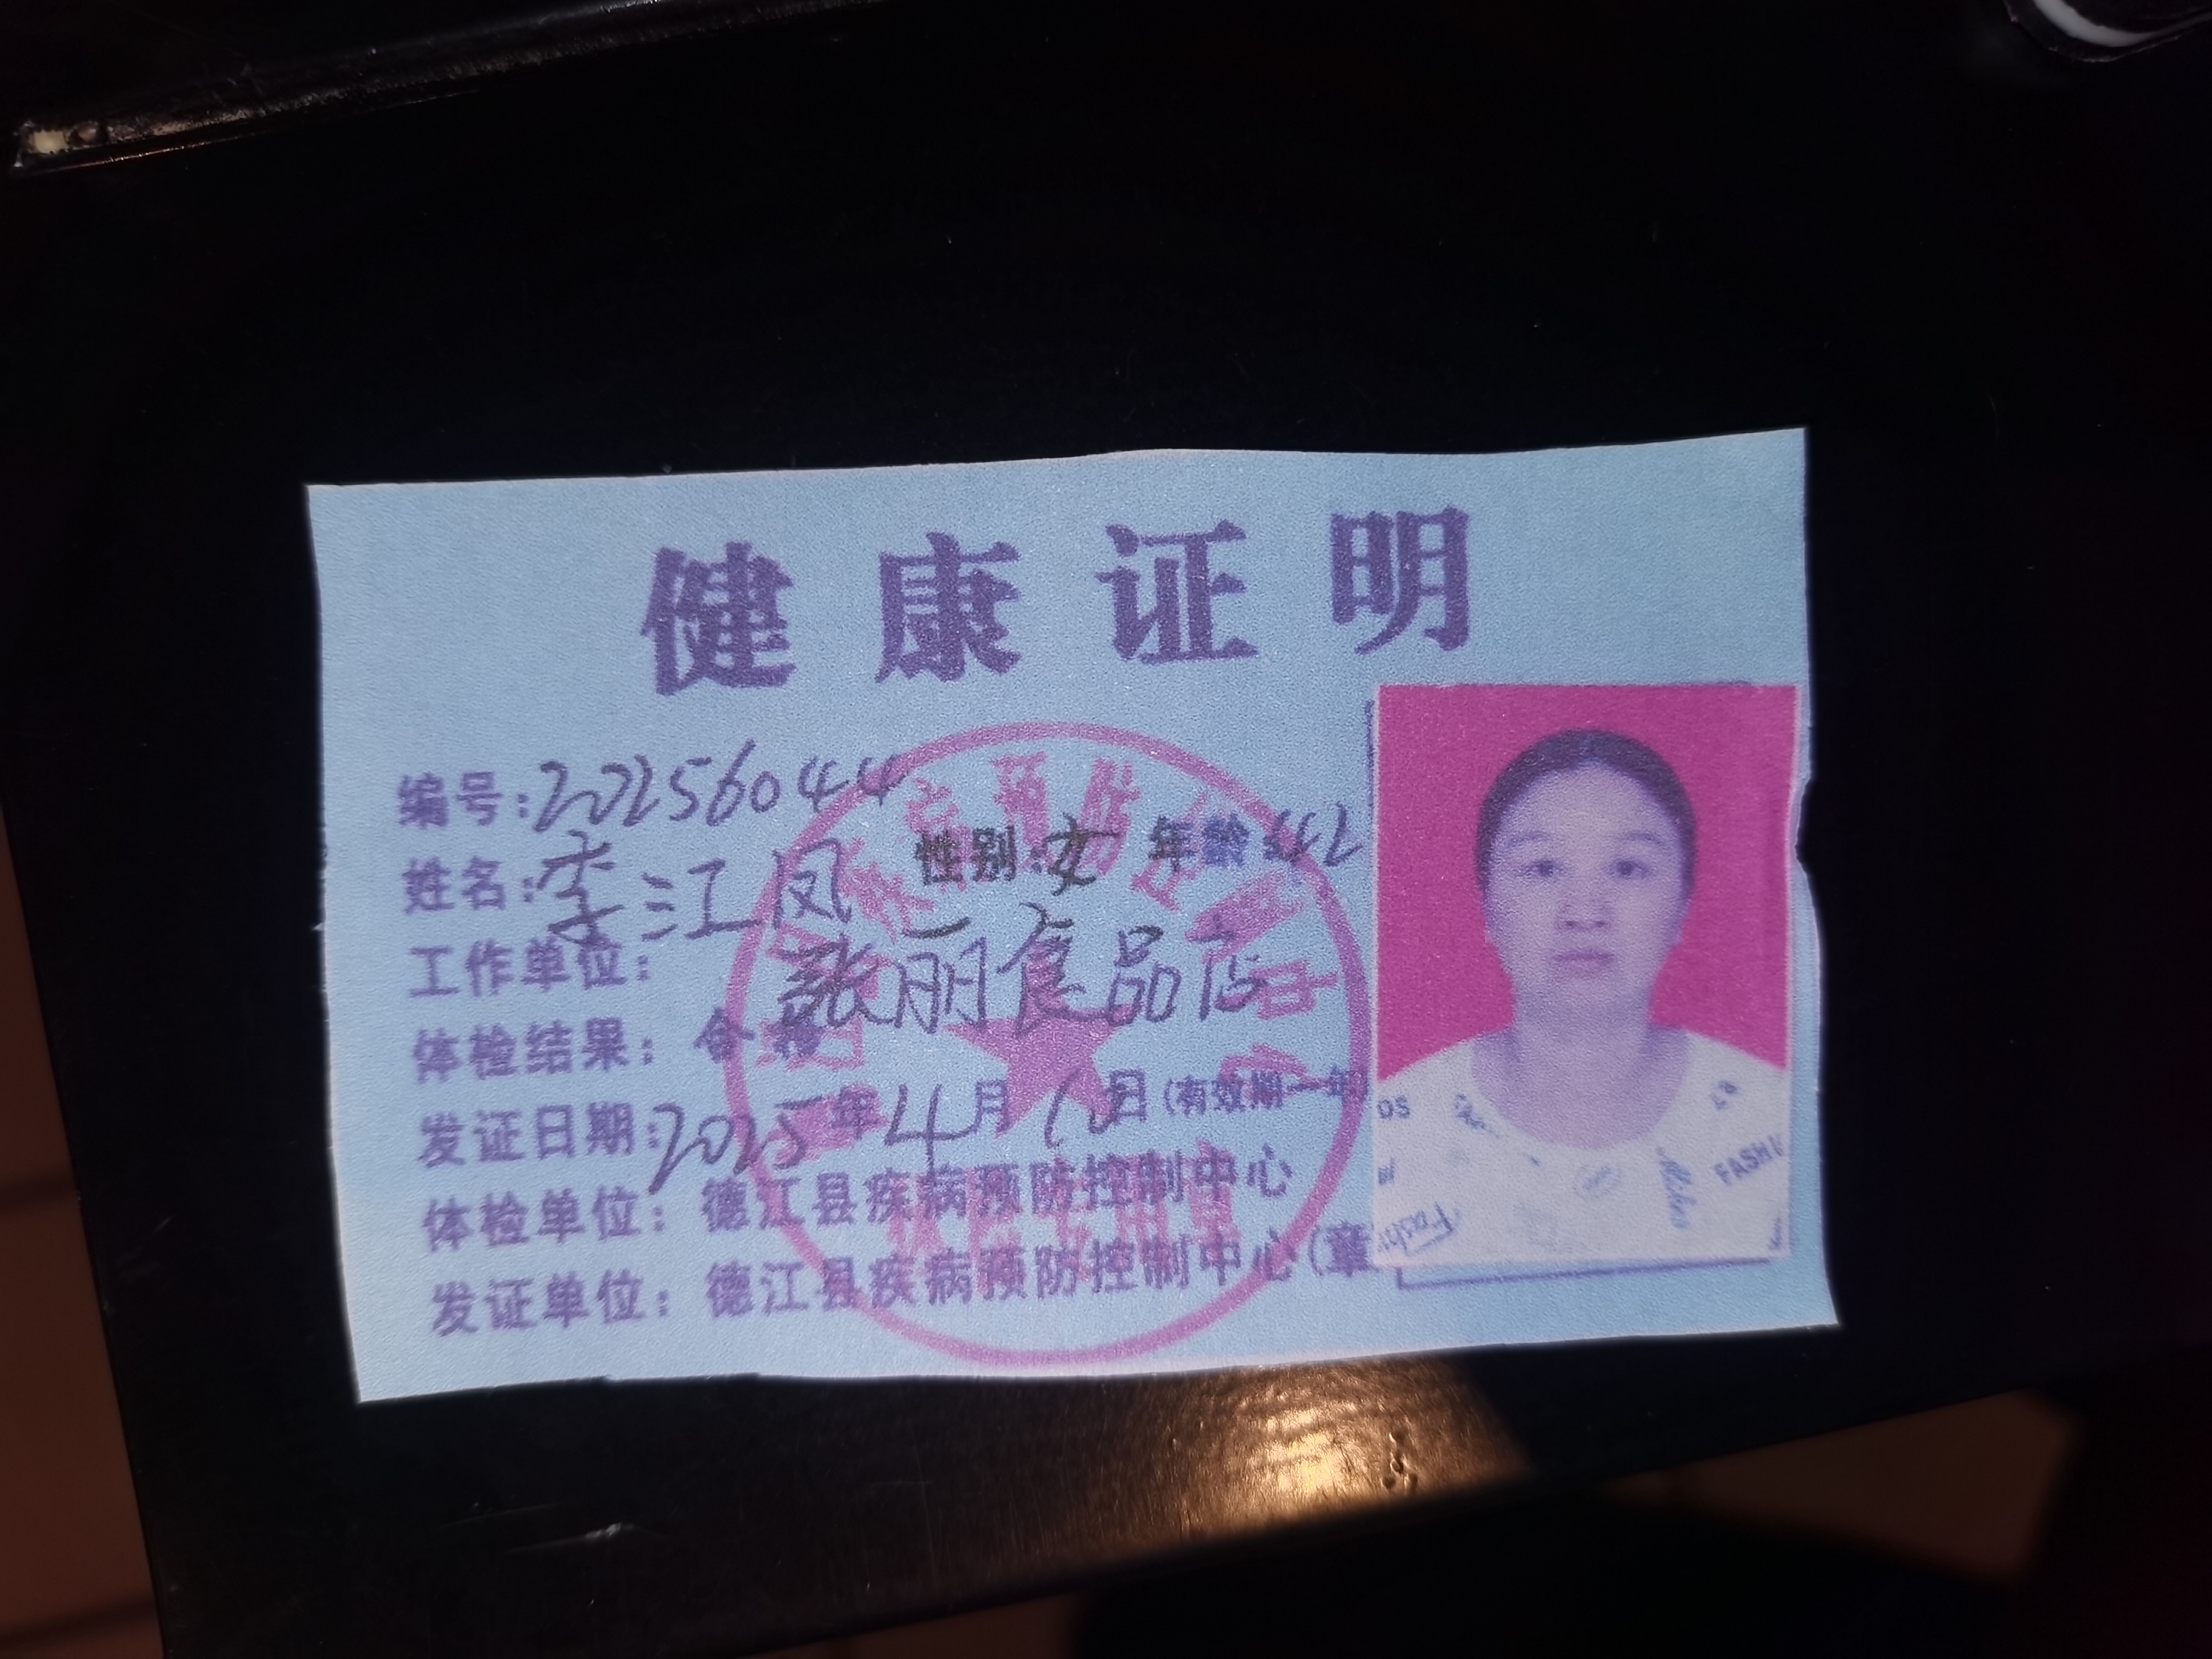 健康证明
编号:202256044
姓名:李江凤 性别:女 年龄:42
工作单位:
張丽食品店
体检结果:合格
发证日期:2025年4月1日(有效期一年)
体检单位:德江县疾病预防控制中心
发证单位:德江县疾病预防控制中心(章
OS
FASHI
Fash